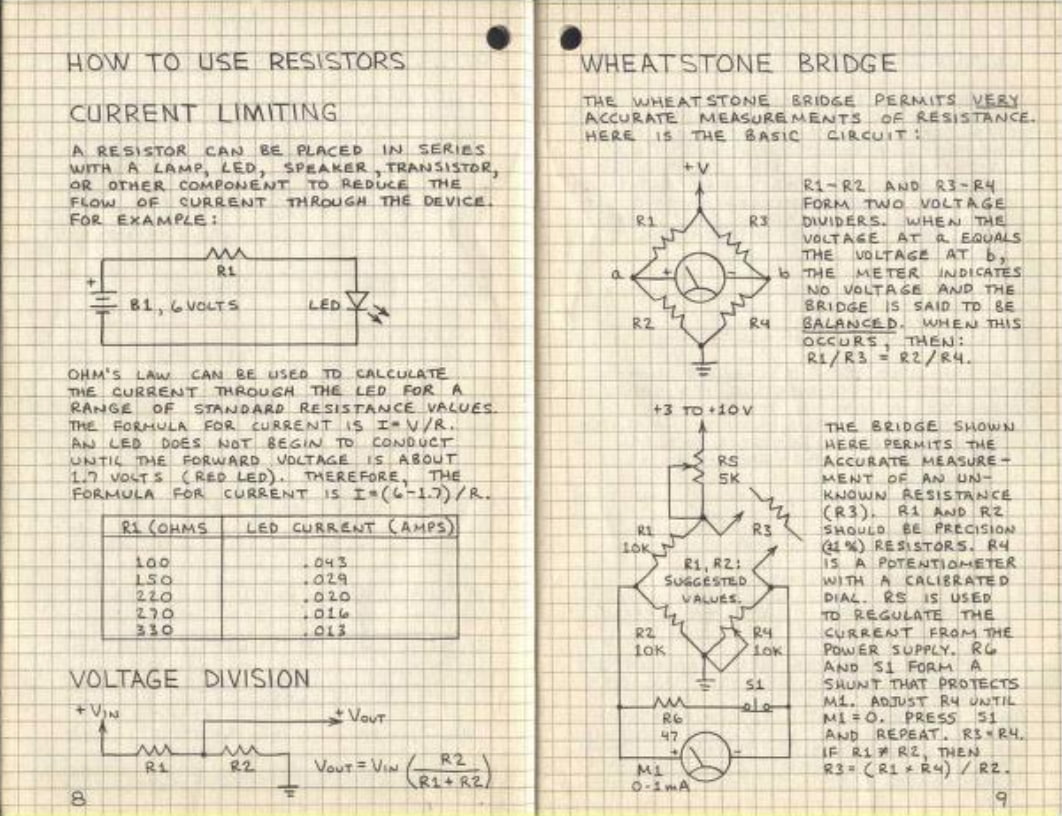 HOW TO USE RESISTORS
CURRENT LIMITING
A RESISTOR CAN BE PLACED IN SERIES
WITH A LAMP, LED, SPEAKER, TRANSISTOR,
OR OTHER COMPONENT TO REDUCE THE
FLOW OF CURRENT THROUGH THE DEVICE.
FOR EXAMPLE:
R1
+
B1, 6 VOLTS
LED
OHM'S LAW CAN BE USED TO CALCULATE
THE CURRENT THROUGH THE LED FOR A
RANGE OF STANDARD RESISTANCE VALUES.
THE FORMULA FOR CURRENT IS I=V/R.
AN LED DOES NOT BEGIN TO CONDUCT
UNTIL THE FORWARD VOLTAGE IS ABOUT
1.7 VOLTS (RED LED). THEREFORE, THE
FORMULA FOR CURRENT IS I=(6-1.7)/R.
R1 (OHMS LED CURRENT (AMPS)
100 .043
150 .029
220 .020
270 .016
330 .013
VOLTAGE DIVISION
+ VIN
+ VOUT
R1 R2
VOUT = VIN (R2 / R1 + R2)
8
WHEATSTONE BRIDGE
THE WHEATSTONE BRIDGE PERMITS VERY
ACCURATE MEASUREMENTS OF RESISTANCE.
HERE IS THE BASIC CIRCUIT:
+V
R1 R3
a + - b
R2 R4
R1-R2 AND R3-R4
FORM TWO VOLTAGE
DIVIDERS. WHEN THE
VOLTAGE AT a EQUALS
THE VOLTAGE AT b,
THE METER INDICATES
NO VOLTAGE AND THE
BRIDGE IS SAID TO BE
BALANCED. WHEN THIS
OCCURS, THEN:
R1/R3 = R2/R4.
+3 TO +10V
R5
5K
R1
10K
R3
R1, R2:
SUGGESTED
VALUES.
R2
10K
R4
10K
S1
R6
47
+ -
M1
0-1mA
THE BRIDGE SHOWN
HERE PERMITS THE
ACCURATE MEASURE-
MENT OF AN UN-
KNOWN RESISTANCE
(R3). R1 AND R2
SHOULD BE PRECISION
(±1%) RESISTORS. R4
IS A POTENTIOMETER
WITH A CALIBRATED
DIAL. R5 IS USED
TO REGULATE THE
CURRENT FROM THE
POWER SUPPLY. R6
AND S1 FORM A
SHUNT THAT PROTECTS
M1. ADJUST R4 UNTIL
M1=0. PRESS S1
AND REPEAT. R3=R4.
IF R1 ≠ R2, THEN
R3 = (R1 × R4) / R2.
9